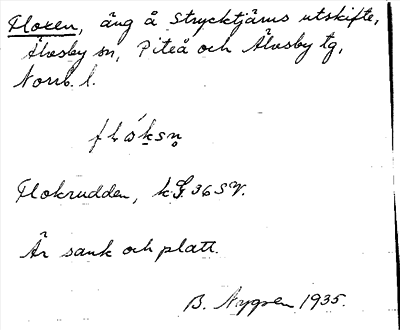 Floxen, äng å Strycktjärns utskifte,
Älvsby sn, Piteå och Älvsby tg,
Norrb. l.
Flokrudden, k. G. 36 SV.
Är sank och platt.
B. Nygren 1935.